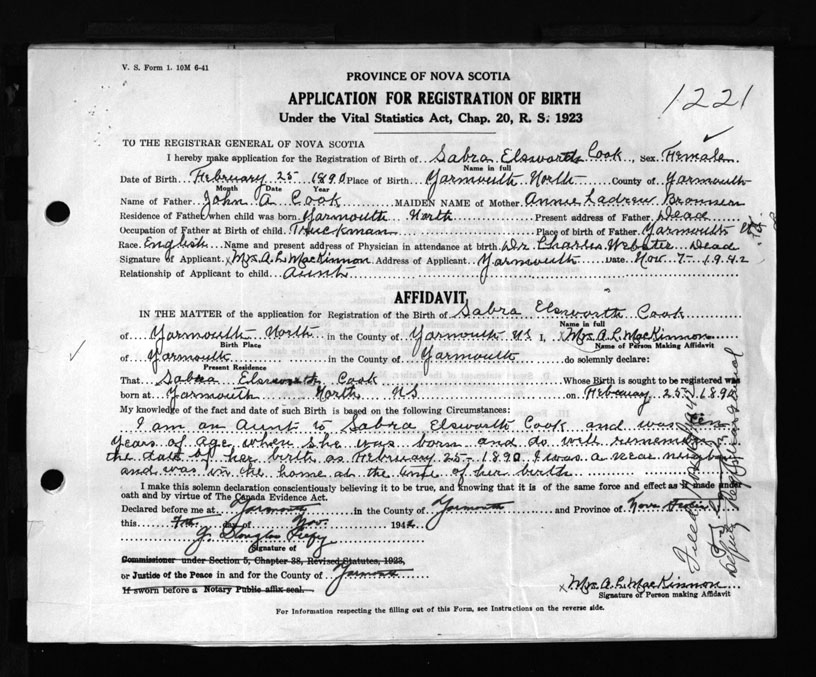 V. S. Form 1. 10M 6-41
PROVINCE OF NOVA SCOTIA
1221
APPLICATION FOR REGISTRATION OF BIRTH
Under the Vital Statistics Act, Chap. 20, R. S. 1923
TO THE REGISTRAR GENERAL OF NOVA SCOTIA
I hereby make application for the Registration of Birth of Sabra Elsworth Cook, Sex Female
Name in full
Date of Birth February 25 1890 Place of Birth Yarmouth North County of Yarmouth
Month Date Year
Name of Father John A Cook MAIDEN NAME of Mother Annie
Residence of Father when child was born Yarmouth North Present address of Father Dead
Occupation of Father at Birth of child Truckman Place of Birth of Father Yarmouth
Race English Name and present address of Physician in attendance at birth Dr Charles Webster Dead
Signature of Applicant x Mrs. A. L. MacKinnon Address of Applicant Yarmouth Date Nov 7-1942
Relationship of Applicant to child Aunt
AFFIDAVIT
IN THE MATTER of the application for Registration of the Birth of Sabra Elsworth Cook
Name in full
of Yarmouth North in the County of Yarmouth NS I, Mrs. A. L. MacKinnon
Birth Place Name of Person Making Affidavit
of Yarmouth in the County of Yarmouth do solemnly declare:
Present Residence
That Sabra Elsworth Cook Whose Birth is sought to be registered was
born at Yarmouth North NS on February 25 1890
My knowledge of the fact and date of such Birth is based on the following Circumstances:
I am an Aunt to Sabra Elsworth Cook and was ten
years of age when she was born and do well remember
the date of her birth as February 25-1890 I was a near neighbor
and was in the home at the time of her birth
I make this solemn declaration conscientiously believing it to be true, and knowing that it is of the same force and effect as if made under
oath and by virtue of The Canada Evidence Act.
Declared before me at Yarmouth in the County of Yarmouth and Province of Nova Scotia
this 7th day of Nov. 1942
J. Douglas
Signature of
Commissioner under Section 5, Chapter 38, Revised Statutes, 1923,
or Justice of the Peace in and for the County of Yarmouth
If sworn before a Notary Public affix seal.
x Mrs. A. L. MacKinnon
Signature of Person making Affidavit
For Information respecting the filling out of this Form, see Instructions on the reverse side.
Filed Nov
Deputy Registrar General